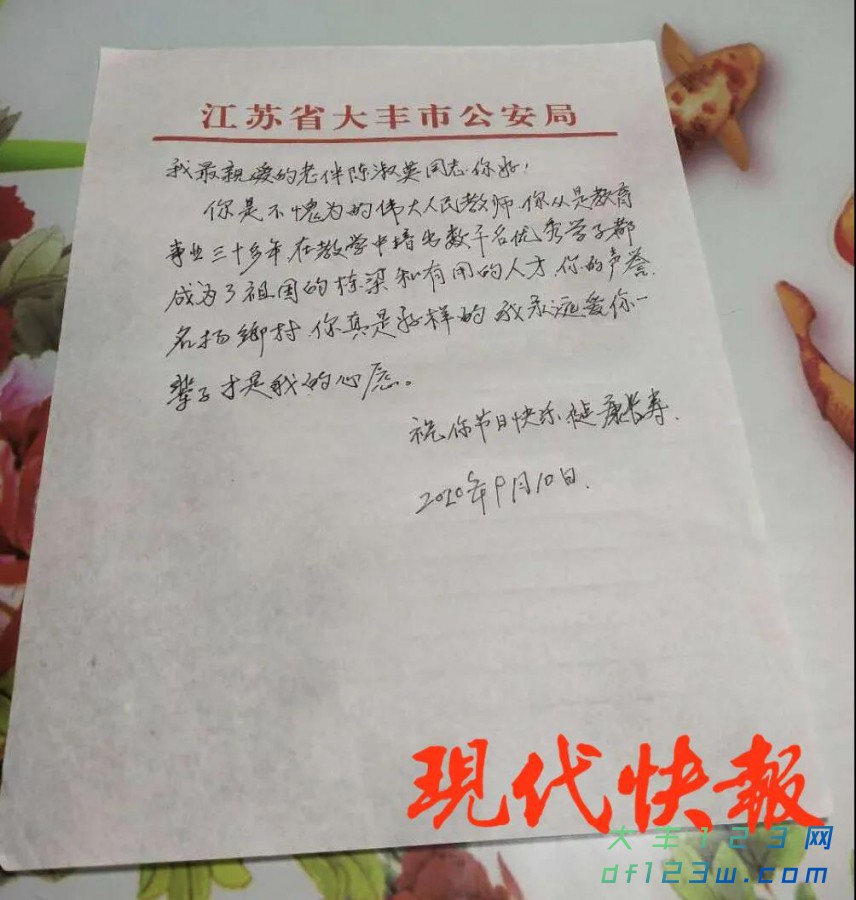 江苏省大丰市公安局
我最亲爱的老伴陈淑英同志你好!
你是不愧为的伟大人民教师.你从是教育
事业三十多年.在教学中培出数千名优秀学子都
成为了祖国的栋梁和有用的人才.你的声誉.
名扬鄉村.你真是好样的.我永远爱你一
辈子才是我的心愿。
祝你节日快乐.健康长寿.
2020年9月10日.
現代快報
大丰123网
df123w.com